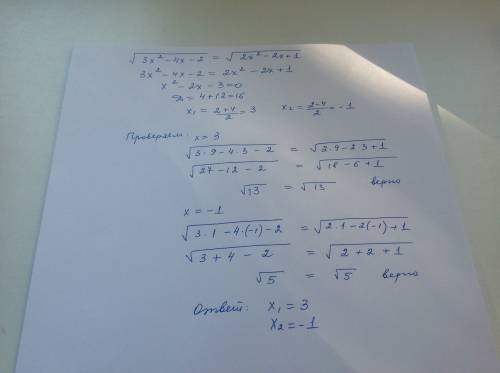 √(3x²-4x-2) = √(2x²-2x+1)
3x²-4x-2 = 2x²-2x+1
x²-2x-3=0
D=4+12=16
x₁ = (2+4)/2 = 3 x₂ = (2-4)/2 = -1
Проверяем: x=3
√(3·9-4·3-2) = √(2·9-2·3+1)
√(27-12-2) = √(18-6+1)
√13 = √13 верно
x=-1
√(3·1-4·(-1)-2) = √(2·1-2(-1)+1)
√(3+4-2) = √(2+2+1)
√5 = √5 верно
Ответ: x₁=3
x₂=-1